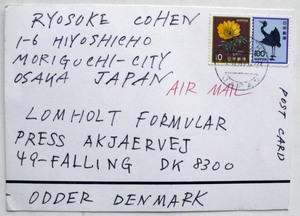 RYOSUKE COHEN
1-6 HIYOSHICHO
MORIGUCHI-CITY
OSAKA JAPAN
AIR MAIL
POST CARD
LOMHOLT FORMULAR
PRESS AKJAERVEJ
49-FALLING DK 8300
ODDER DENMARK
10
100